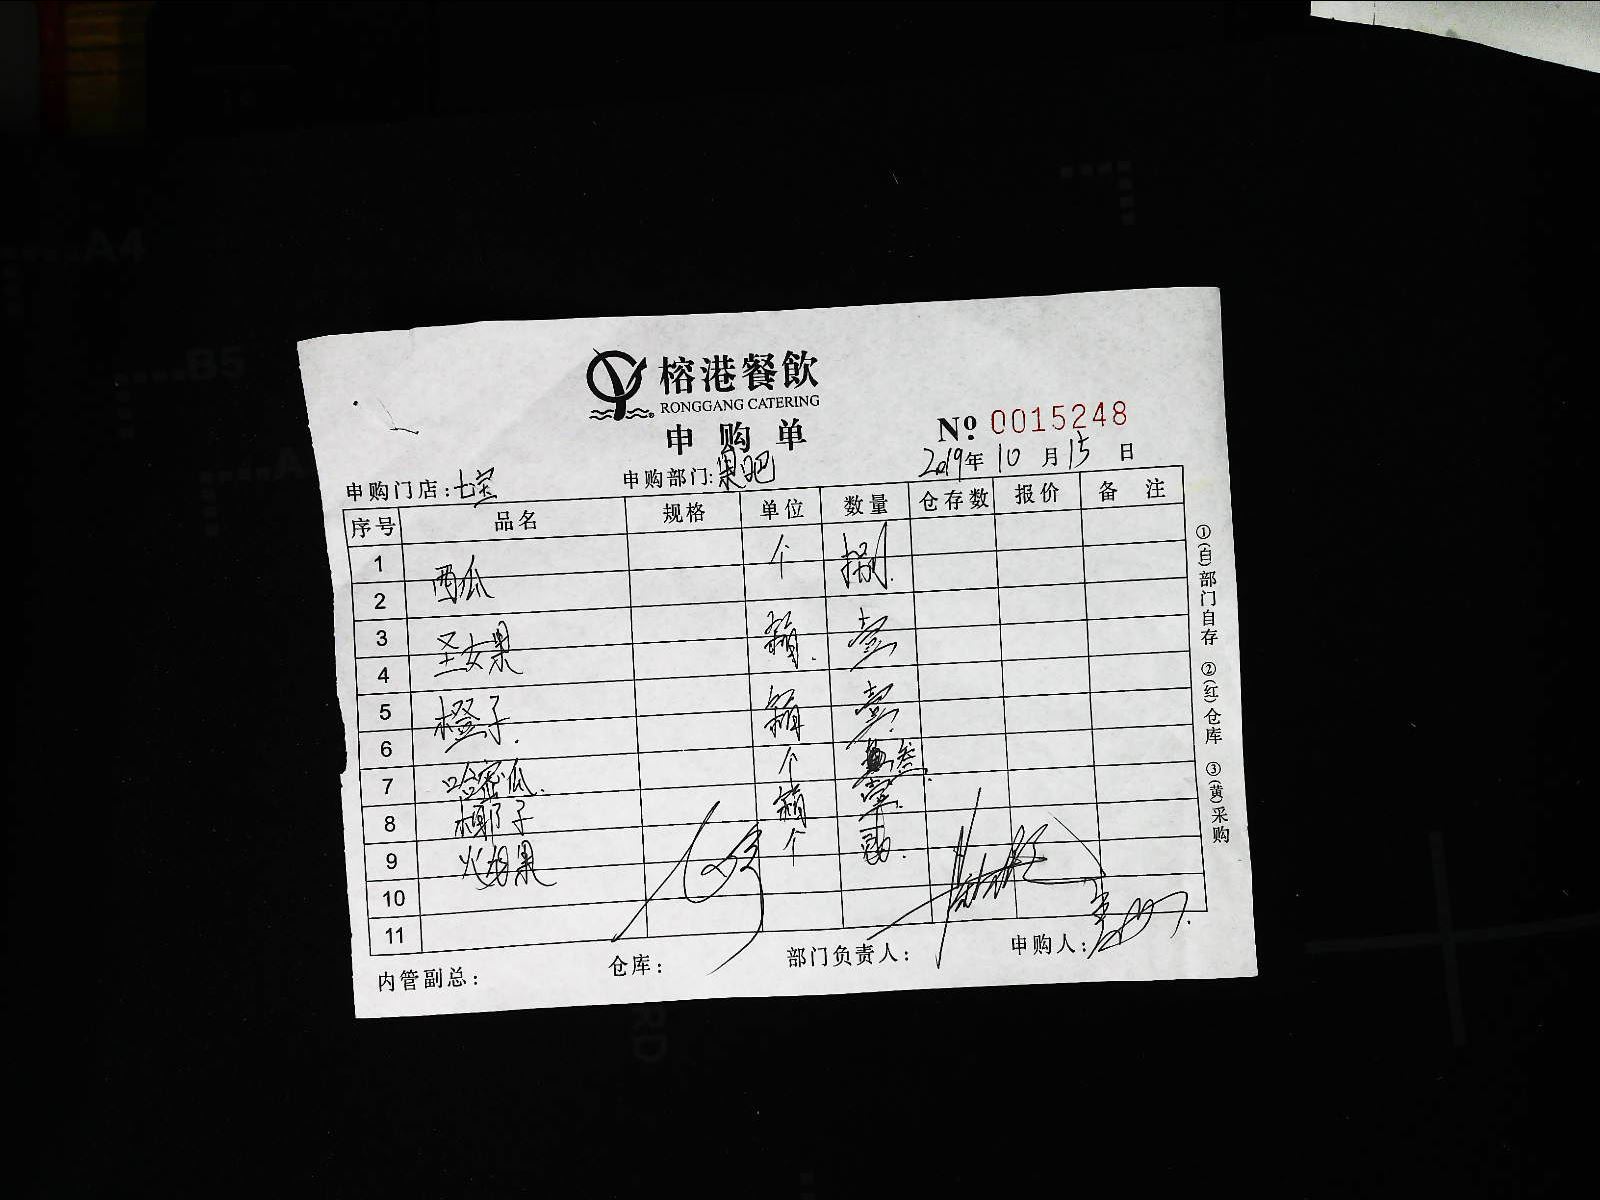 榕港餐飲
RONGGANG CATERING
申购单
№ 0015248
2019年10月15日
申购门店:七宝 申购部门:果吧
序号 品名 规格 单位 数量 仓存数 报价 备 注
1 西瓜 个 捌
2
3 圣女果 箱 壹
4
5 橙子 箱 壹
6
7 哈密瓜 个 叁
8 椰子 箱
9 火龙果 个
10
11
内管副总: 仓库: 部门负责人: 申购人:
①(白)部门自存 ②(红)仓库 ③(黄)采购
A4
B5